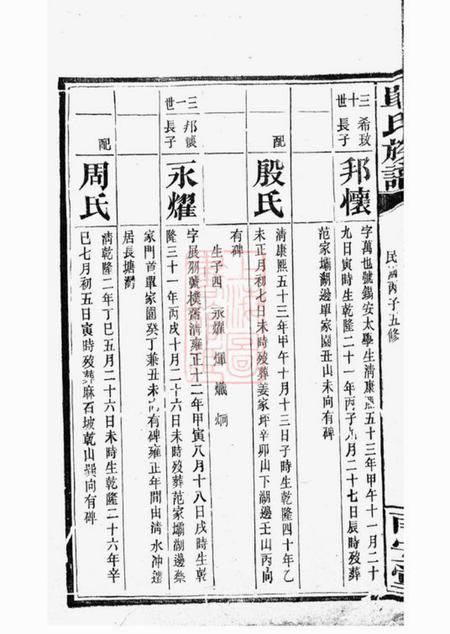 單氏族譜
民國丙子五修
三十世
希孜長子
邦懷
字萬也號錫安太學生清康熙五十三年甲午十一月二十
九日寅時生乾隆二十一年丙子九月二十七日辰時歿葬
范家壩湖邊單家園丑山未向有碑
配
殷氏
清康熙五十三年甲午十月十三日子時生乾隆四十年乙
未正月初七日未時歿葬姜家坪辛卯山下湖邊壬山丙向
有碑
生子四 永耀 煇 熾 炯
三一世
邦懷長子
永耀
字展朋號樸舊清雍正十二年甲寅八月十八日戌時生乾
隆三十一年丙戌十月二十六日未時歿葬范家壩湖邊
家門首單家園癸丁兼丑未向有碑雍正年間由清水沖遷
居長塘灣
配
周氏
清乾隆二年丁巳五月二十六日未時生乾隆二十六年辛
巳七月初五日寅時歿葬麻石坡乾山巽向有碑